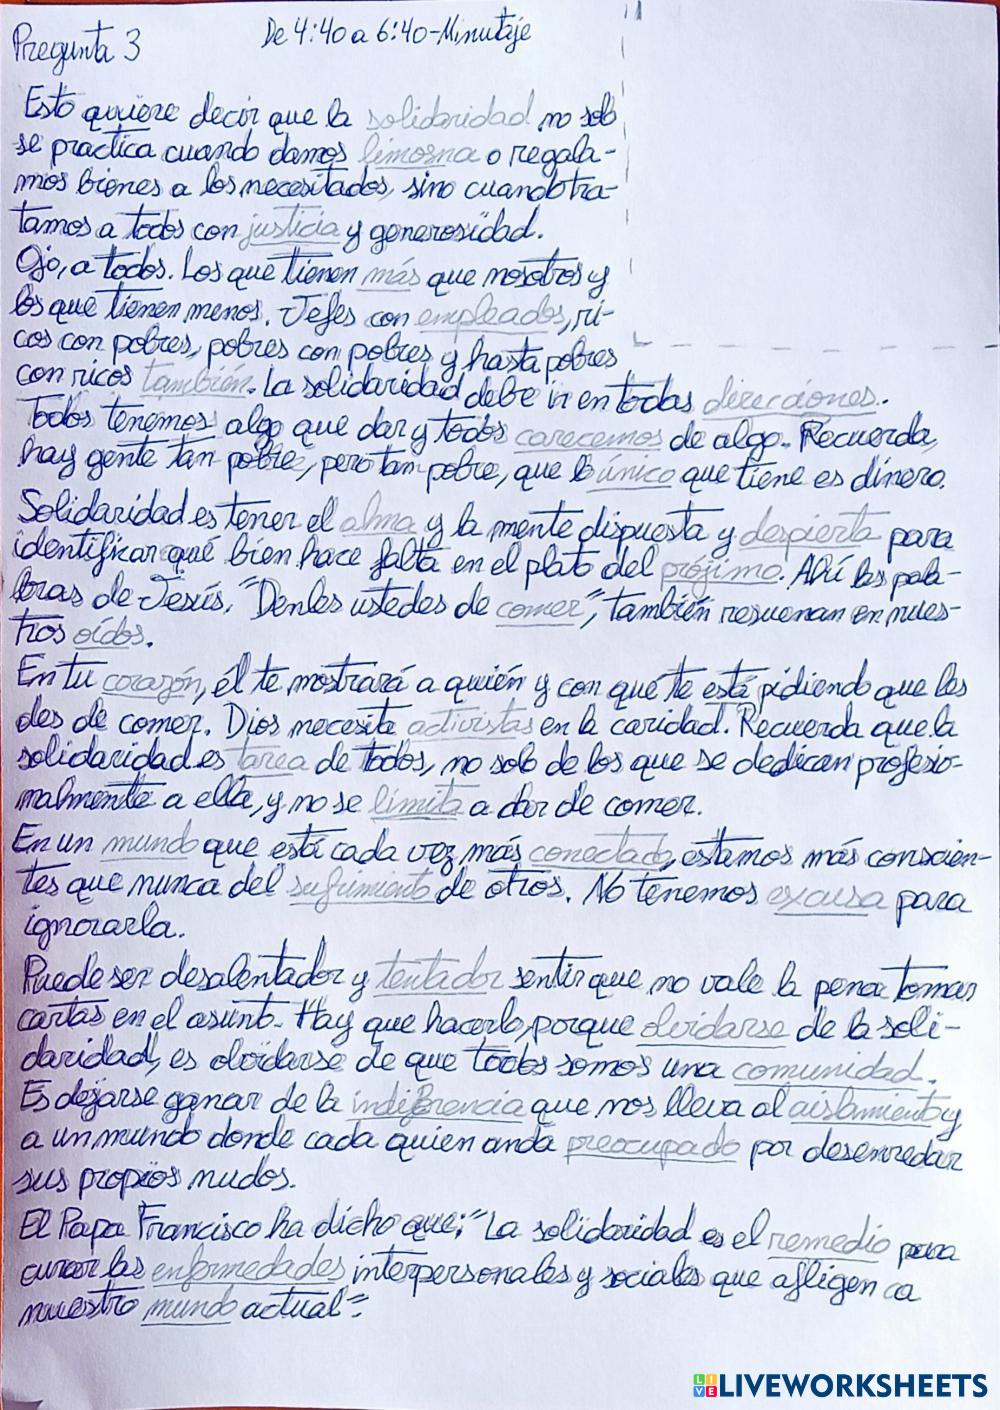 Pregunta 3
De 4:40 a 6:40-Minutaje
Esto quiere decir que la solidaridad no solo
se practica cuando damos limosna o regala-
mos bienes a los necesitados, sino cuando tra-
tamos a todos con justicia y generosidad.
Ojo, a todos. Los que tienen más que nosotros y
los que tienen menos. Jefes con empleados, ri-
cos con pobres, pobres con pobres y hasta pobres
con ricos también. La solidaridad debe ir en todas direcciones.
Todos tenemos algo que dar y todos carecemos de algo. Recuerda,
hay gente tan pobre, pero tan pobre, que lo único que tiene es dinero.
Solidaridad es tener el alma y la mente dispuesta y despierta para
identificar qué bien hace falta en el plato del prójimo. Ahí las pala-
bras de Jesús, "Denles ustedes de comer", también resuenan en nues-
tros oídos.
En tu corazón, él te mostrará a quién y con qué te está pidiendo que les
des de comer. Dios necesita activistas en la caridad. Recuerda que la
solidaridad es tarea de todos, no solo de los que se dedican profesio-
nalmente a ella, y no se limita a dar de comer.
En un mundo que está cada vez más conectado, estamos más conscien-
tes que nunca del sufrimiento de otros. No tenemos excusa para
ignorarla.
Puede ser desalentador y tentador sentir que no vale la pena tomar
cartas en el asunto. Hay que hacerlo, porque olvidarse de la soli-
daridad, es olvidarse de que todos somos una comunidad.
Es dejarse ganar de la indiferencia que nos lleva al aislamiento y
a un mundo donde cada quien anda preocupado por desenredar
sus propios nudos.
El Papa Francisco ha dicho que: "La solidaridad es el remedio para
curar las enfermedades interpersonales y sociales que afligen a
nuestro mundo actual".
LIVEWORKSHEETS